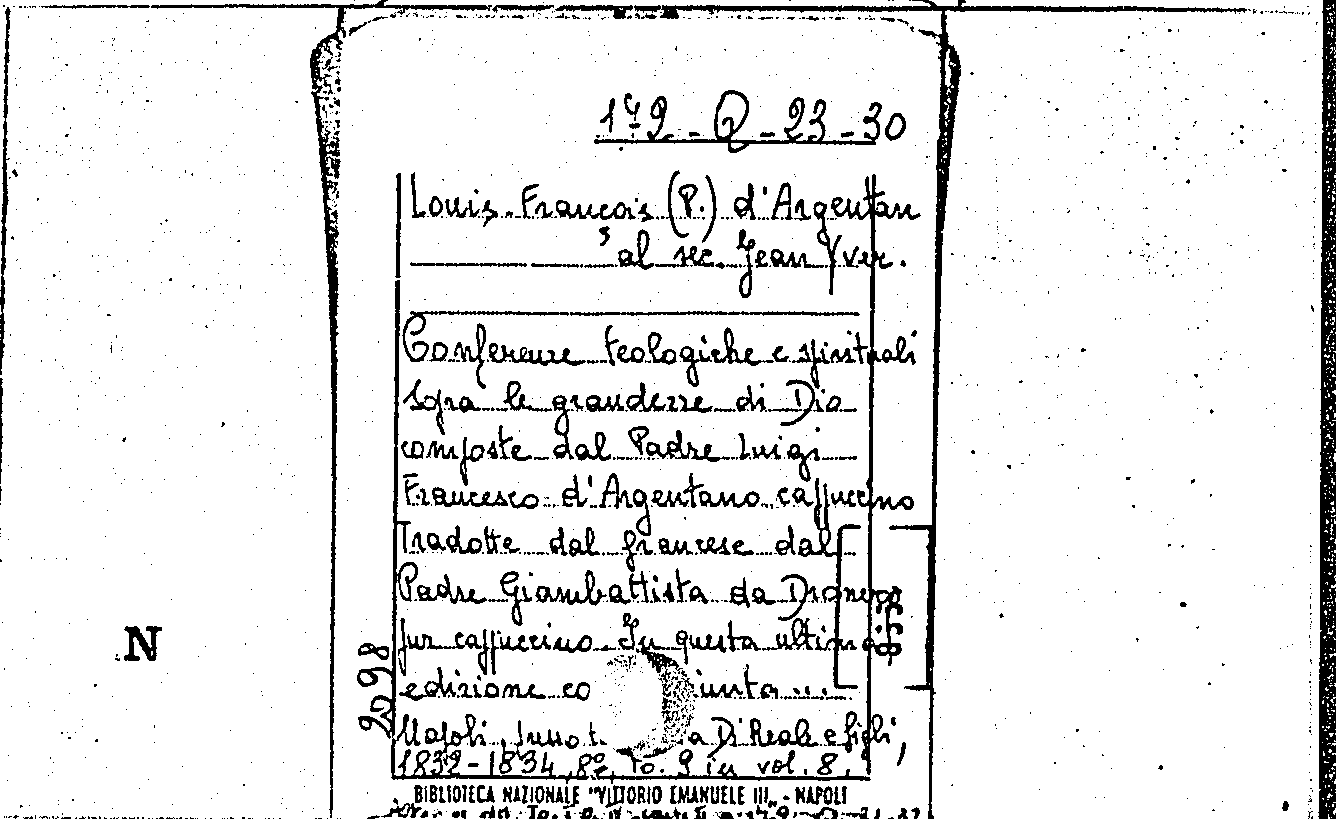 172-Q-23-30
Louis-François (P.) d'Argentan
al sec. Jean Yver.
Conferenze teologiche e spirituali
sopra le grandezze di Dio
composte dal Padre Luigi
Francesco d'Argentano cappuccino
Tradotte dal francese dal
Padre Giambattista da Dronero
pur cappuccino. In questa ultima
N
edizione co iunta ...
2098
Napoli, a Di Reale e figli,
1832-1834, 8º, to. 9 in vol. 8.
BIBLIOTECA NAZIONALE "VITTORIO EMANUELE III" - NAPOLI